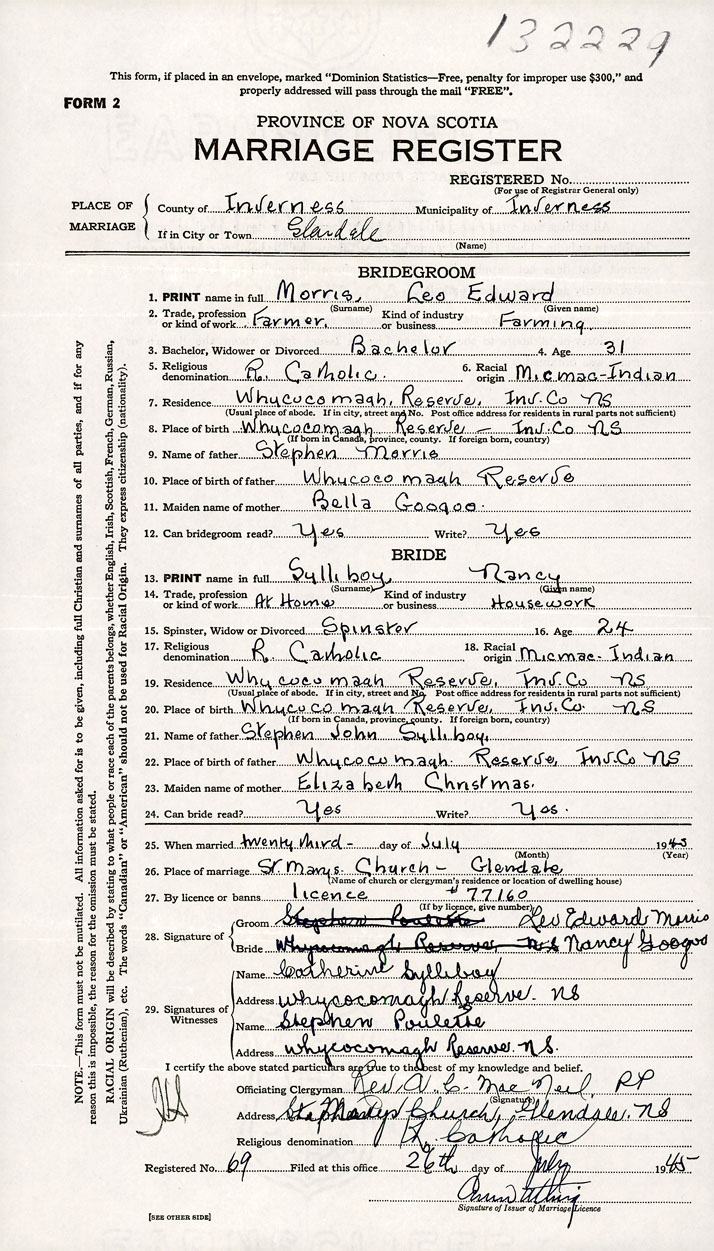 132229
This form, if placed in an envelope, marked "Dominion Statistics—Free, penalty for improper use $300," and
properly addressed will pass through the mail "FREE".
FORM 2
PROVINCE OF NOVA SCOTIA
MARRIAGE REGISTER
REGISTERED No.
(For use of Registrar General only)
PLACE OF MARRIAGE
County of Inverness Municipality of Inverness
If in City or Town Glendale
(Name)
BRIDEGROOM
1. PRINT name in full Morris, Leo Edward
(Surname) (Given name)
2. Trade, profession or kind of work Farmer. Kind of industry or business Farming
3. Bachelor, Widower or Divorced Bachelor 4. Age 31
5. Religious denomination R. Catholic. 6. Racial origin Micmac-Indian
7. Residence Whycocomagh Reserve, Inv. Co NS
(Usual place of abode. If in city, street and No. Post office address for residents in rural parts not sufficient)
8. Place of birth Whycocomagh Reserve - Inv. Co NS
(If born in Canada, province, county. If foreign born, country)
9. Name of father Stephen Morris
10. Place of birth of father Whycocomagh Reserve
11. Maiden name of mother Bella Googoo.
12. Can bridegroom read? Yes Write? Yes
BRIDE
13. PRINT name in full Sylliboy, Nancy
(Surname) (Given name)
14. Trade, profession or kind of work At Home Kind of industry or business Housework
15. Spinster, Widow or Divorced Spinster 16. Age 24
17. Religious denomination R. Catholic 18. Racial origin Micmac-Indian
19. Residence Whycocomagh Reserve, Inv. Co NS
(Usual place of abode. If in city, street and No. Post office address for residents in rural parts not sufficient)
20. Place of birth Whycocomagh Reserve, Inv. Co. NS
(If born in Canada, province, county. If foreign born, country)
21. Name of father Stephen John Sylliboy.
22. Place of birth of father Whycocomagh Reserve, Inv. Co NS
23. Maiden name of mother Elizabeth Christmas.
24. Can bride read? Yes Write? Yes.
25. When married twenty third - day of July 1945
(Month) (Year)
26. Place of marriage St. Marys Church - Glendale
(Name of church or clergyman's residence or location of dwelling house)
27. By licence or banns licence # 77160
(If by licence, give number)
28. Signature of
Groom Stephen Poulette Leo Edward Morris
Bride Whycocomagh Reserve NS Nancy Googoo
29. Signatures of Witnesses
Name Catherine Sylliboy
Address Whycocomagh Reserve. NS
Name Stephen Poulette
Address Whycocomagh Reserve. N.S.
I certify the above stated particulars are true to the best of my knowledge and belief.
Officiating Clergyman Rev. A. C. Mac Neil, PP
(Signature)
Address St Marys Church, Glendale. NS
Religious denomination R. Catholic
Registered No. 69 Filed at this office 26th day of July 1945
Signature of Issuer of Marriage Licence
[SEE OTHER SIDE]
NOTE.—This form must not be mutilated. All information asked for is to be given, including full Christian and surnames of all parties, and if for any
reason this is impossible, the reason for the omission must be stated.
RACIAL ORIGIN will be described by stating to what people or race each of the parents belongs, whether English, Irish, Scottish, French, German, Russian,
Ukrainian (Ruthenian), etc. The words "Canadian" or "American" should not be used for Racial Origin. They express citizenship (nationality).